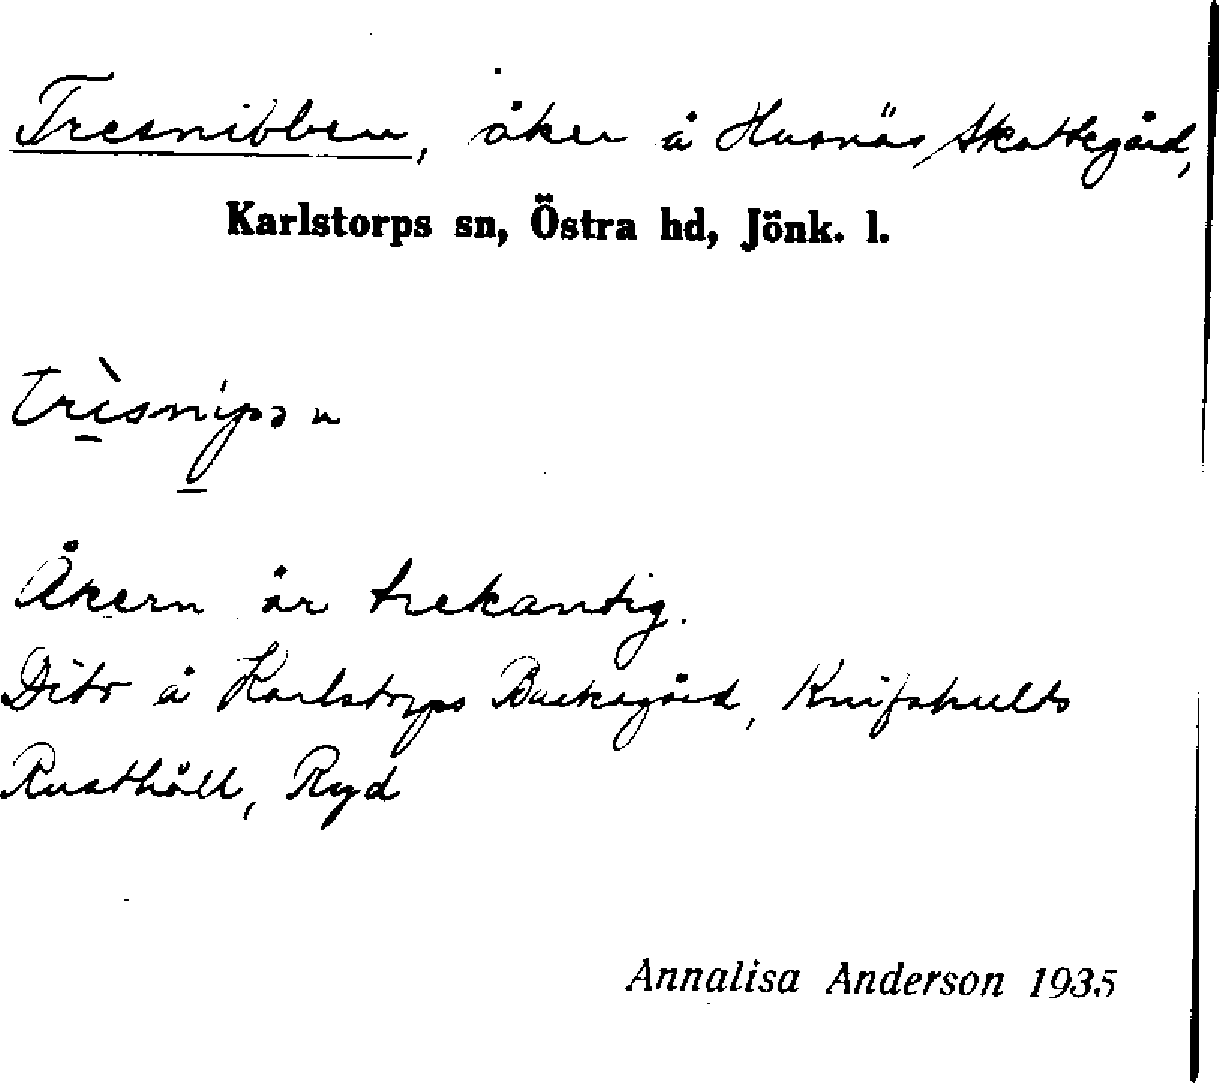 Tresnibben, åker å Husnäs Skattegård,
Karlstorps sn, Östra hd, Jönk. l.
trìsnípən
Åkern är trekantig.
Dito å Karlstorps Backegård, Knifshults
Rusthåll, Ryd
Annalisa Anderson 1935